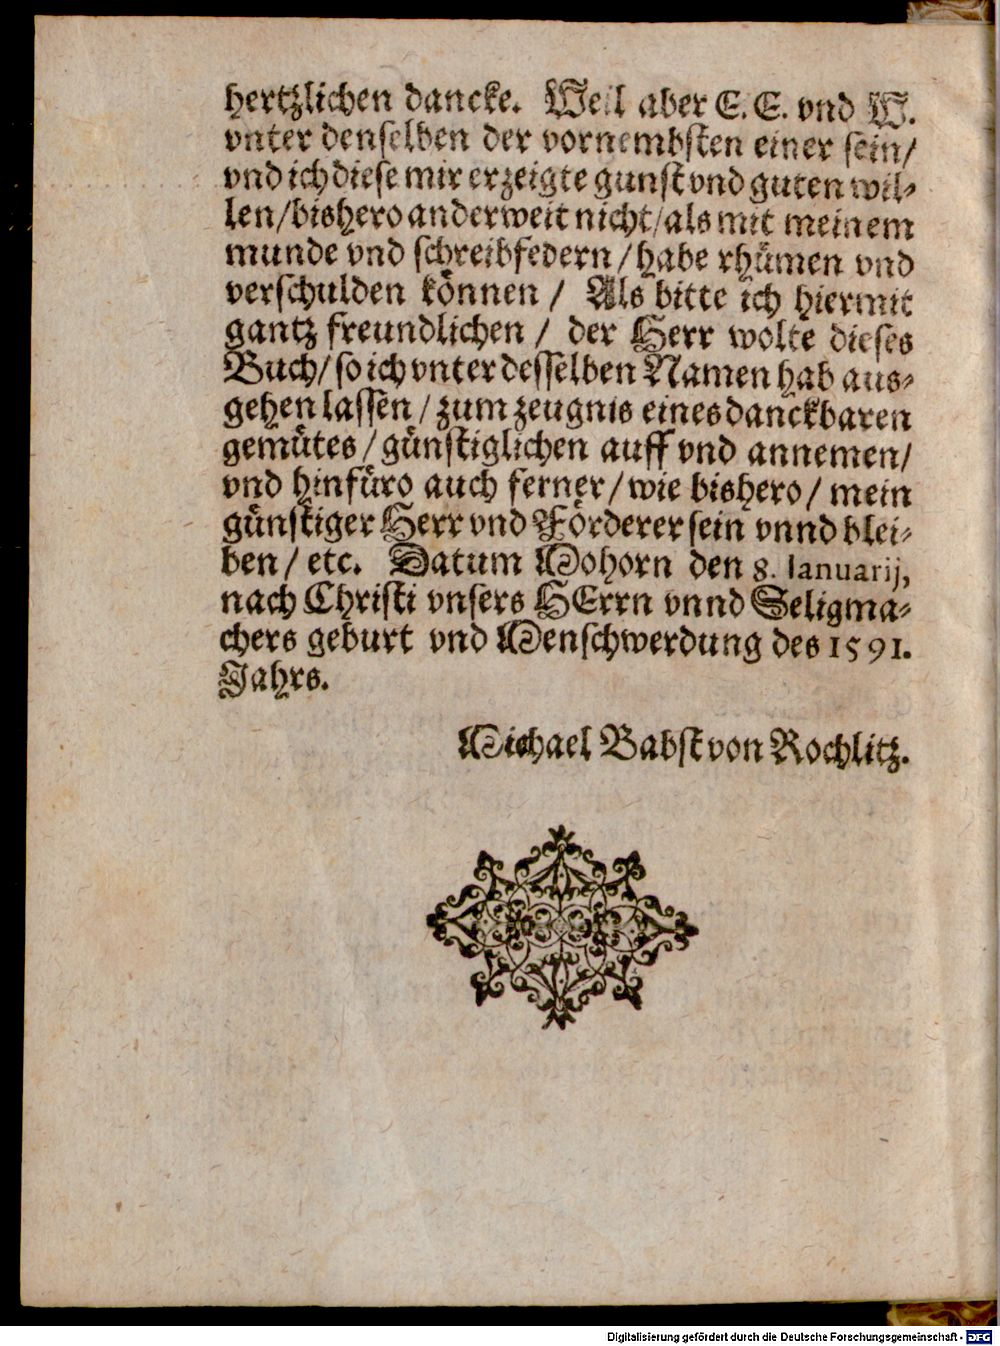 hertzlichen dancke. Weil aber E. E. vnd W.
vnter denselben der vornembsten einer sein/
vnd ich diese mir erzeigte gunst vnd guten wil-
len/bishero anderweit nicht/als mit meinem
munde vnd schreibfedern/habe rhümen vnd
verschulden können / Als bitte ich hiermit
gantz freundlichen / der Herr wolte dieses
Buch/so ich vnter desselben Namen hab aus-
gehen lassen/zum zeugnis eines danckbaren
gemütes/günstiglichen auff vnd annemen/
vnd hinfüro auch ferner/wie bishero/mein
günstiger Herr vnd Förderer sein vnnd blei-
ben/ etc. Datum Mohorn den 8. Ianuarij,
nach Christi vnsers HErrn vnnd Seligma-
chers geburt vnd Menschwerdung des 1591.
Jahrs.
Michael Babst von Rochlitz.
Digitalisierung gefördert durch die Deutsche Forschungsgemeinschaft - DFG